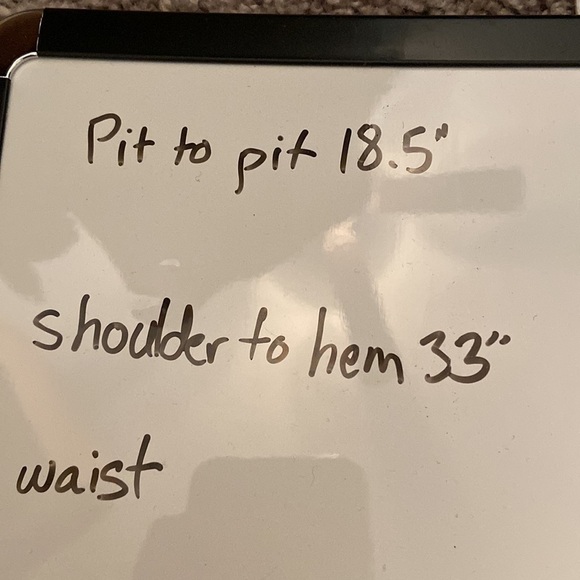 Pit to pit 18.5"
shoulder to hem 33"
waist